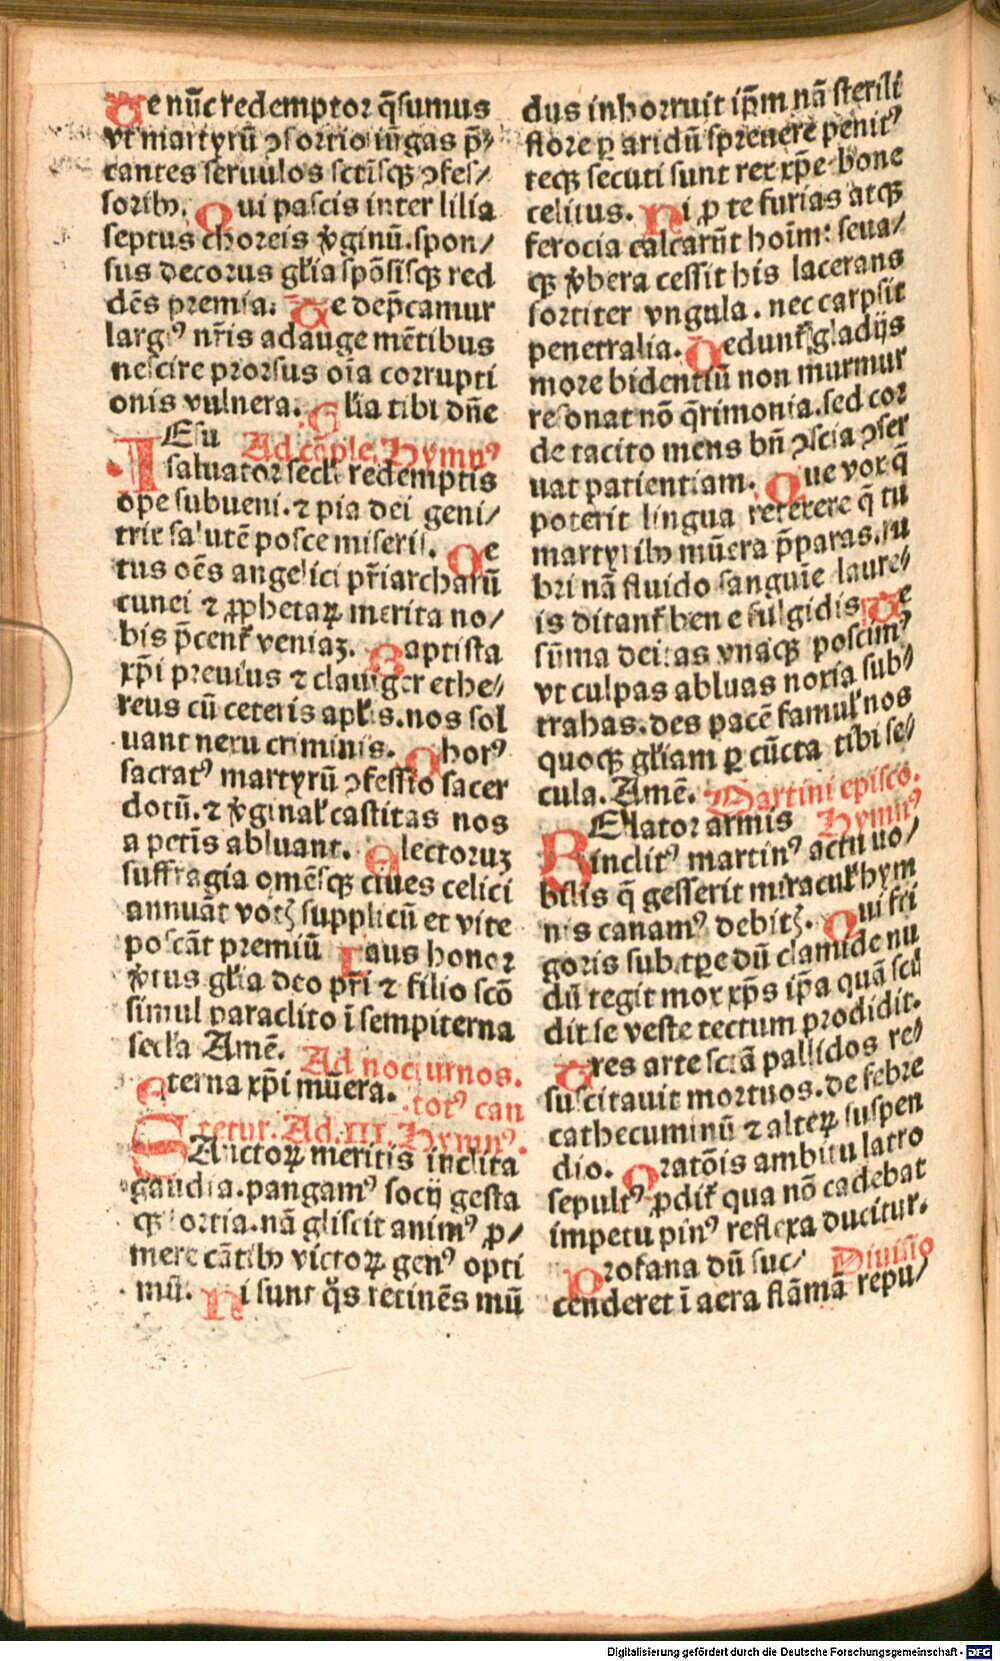 Te nūc redemptor q̄sumus
vt martyrū ꝯsortio iūgas p̄/
cantes seruulos sctīsqꝫ ꝯfes/
soribꝰ. Qui pascis inter lilia
septus choreis v̓ginū.spon/
sus decorus gl̓ia spōsisqꝫ red
dēs premia. Te dep̄camur
largꝰ nr̄is adauge mētibus
nescire prorsus oīa corrupti
onis vulnera. Gl̓ia tibi dn̄e
Ad cōple. Hymnꝰ
IEsu
saluator secl̓i redemptis
ope subueni.⁊ pia dei geni/
trix salutē posce miseris. Ce
tus oēs angelici pr̄iarcharū
cunei ⁊ ꝓphetaꝝ merita no/
bis p̄cent̓ veniaꝫ. Baptista
xp̄i preuius ⁊ clauiger ethe/
reus cū ceteris apl̓is.nos sol
uant nexu criminis. Chorꝰ
sacratꝰ martyrū ꝯfessio sacer
dotū.⁊ v̓ginal̓ castitas nos
a pctīs abluant. Electoruꝫ
suffragia omēsqꝫ ciues celici
annuāt votꝫ supplicū et vite
poscāt premiū Laus honor
v̓tus gl̓ia deo pr̄i ⁊ filio scō
simul paraclito ī sempiterna
secl̓a Amē. Ad nocturnos.
Eterna xp̄i mūera. totꝰ can
tetur. Ad.III. Hymnꝰ.
SAnctoꝝ meritis inclita
gaudia.pangamꝰ socij gesta
qꝫ fortia.nā gliscit animꝰ ꝓ/
mere cātibꝰ victoꝝ genꝰ opti
mū. Hi sunt q̊s retinēs mū
dus inhorruit ip̄m nā sterili
flore ꝑ aridū spreuere penitꝰ
teqꝫ secuti sunt rex xp̄e bone
celitus. Hi ꝓ te furias atqꝫ
ferocia calcarūt hoīm: seua/
qꝫ v̓bera cessit his lacerans
fortiter vngula. nec carpsit
penetralia. Cedunt̓ gladijs
more bidentiū non murmur
resonat nō q̄rimonia.sed cor
de tacito mens bn̄ ꝯscia ꝯser
uat patientiam. Que vox q̄
poterit lingua retexere q̄ tu
martyribꝰ mūera p̄paras.ru
bri nā fluido sanguīe laure/
is ditant̓ bene fulgidis Te
sūma deitas vnaqꝫ poscimꝰ
vt culpas abluas noxia sub/
trahas.des pacē famul̓ nos
quoqꝫ gl̓iam ꝑ cūcta tibi se/
cula. Amē. Martini episco.
Hymnꝰ
BEllator armis
inclitꝰ martinꝰ actu no/
bilis q̄ gesserit miracul̓ hym
nis canamꝰ debitꝫ. Qui fri
goris sub tꝑe dū clamide nu
dū tegit mox xp̄s ip̄a quā sci
dit se veste tectum prodidit.
Tres arte scīā pallidos re/
suscitauit mortuos.de febre
cathecuminū ⁊ alteꝝ suspen
dio. Oratōis ambitu latro
sepultꝰ ꝓdit̓ qua nō cadebat
impetu pinꝰ reflexa ducitur.
Diuisio
Profana dū suc/
cenderet ī aera flāmā repu/
Digitalisierung gefördert durch die Deutsche Forschungsgemeinschaft - DFG